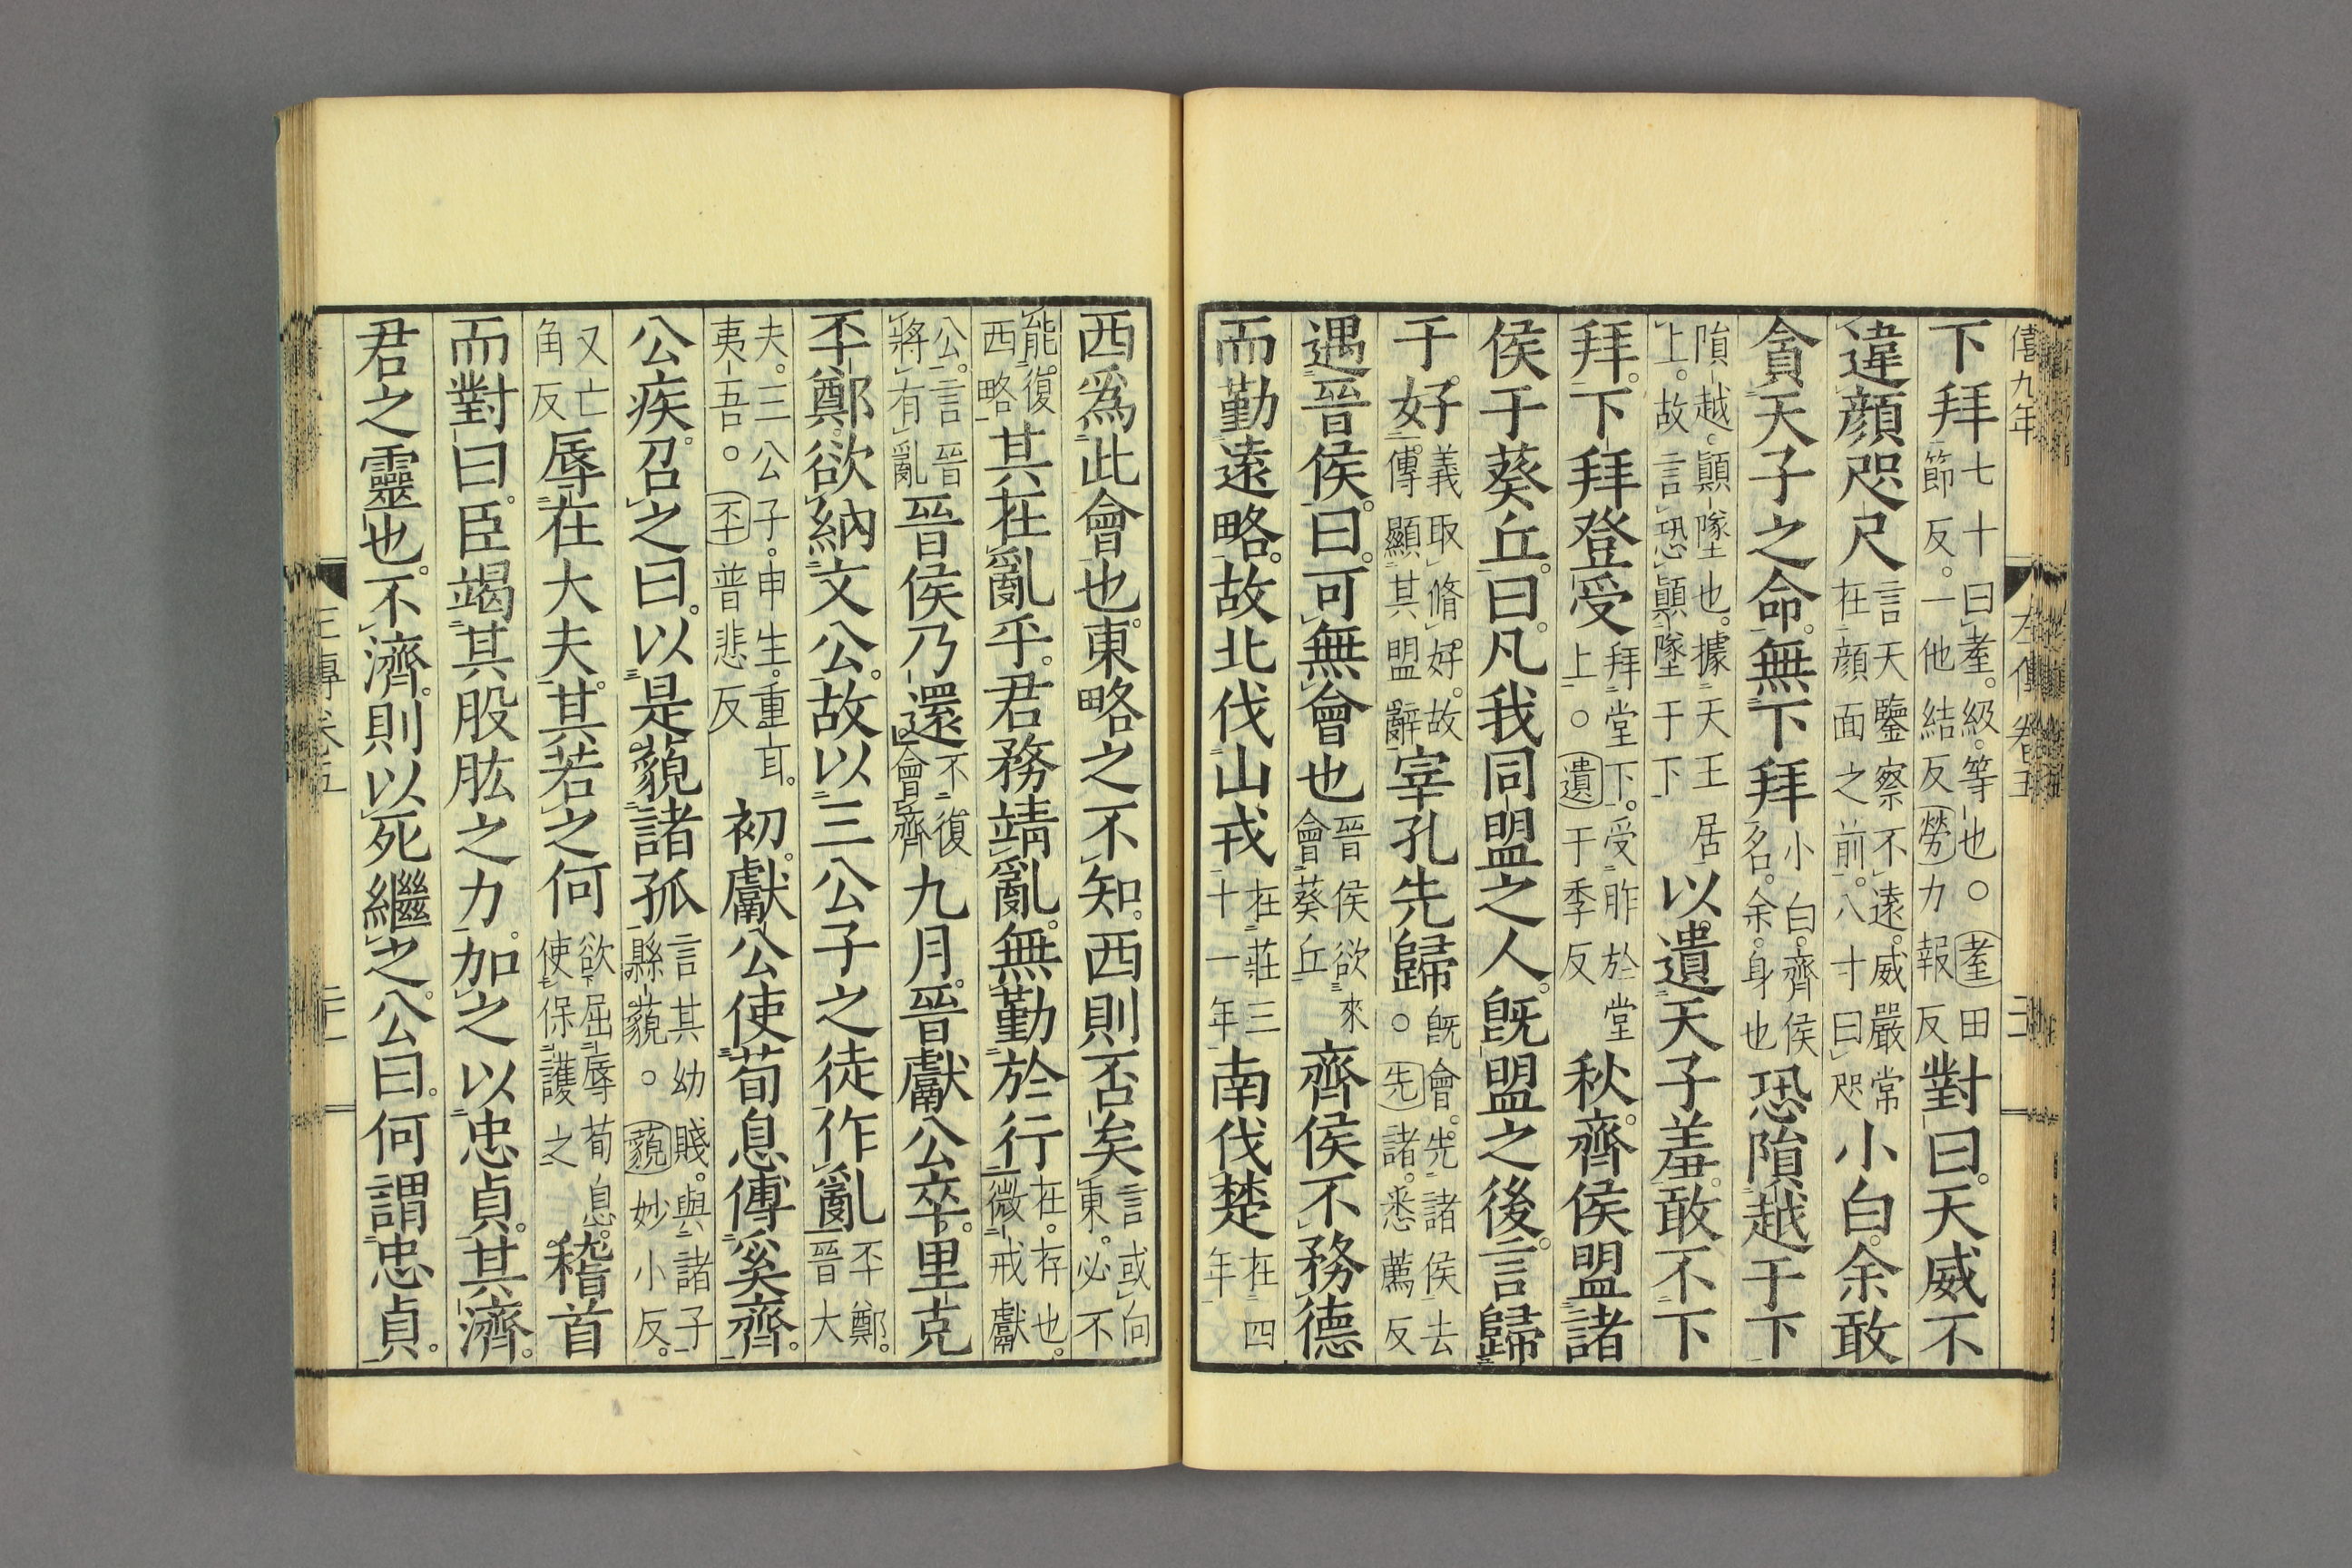 僖九年
左傳卷五
下拜七十曰耋。級。等也○耋田節反。一他結反勞力報反對曰。天威不
違顔咫尺言天鑒察不遠。威嚴常在顔面之前。八寸曰咫小白。余敢
貪天子之命。無下拜小白。齊侯名。余。身也恐隕越于下
隕越。顚墜也。據天王居上。故言恐顚墜于下以遺天子羞。敢不下
拜。下拜登受拜堂下。受胙於堂上○遺于季反秋。齊侯盟諸
侯于葵丘。曰。凡我同盟之人。旣盟之後。言歸
于好。義取脩好。故傳顯其盟辭宰孔先歸旣會。先諸侯去○先諸。悉薦反
遇晉侯。曰。可無會也晉侯欲來會葵丘齊侯不務德
而勤遠略。故北伐山戎在莊三十一年南伐楚在四年
西爲此會也。東略之不知。西則否矣言或向東。必不
能復西略其在亂乎。君務靖亂。無勤於行在。存也。微戒獻
公。言晉將有亂晉侯乃還不復會齊九月。晉獻公卒。里克
㔻鄭。欲納文公。故以三公子之徒作亂㔻鄭。晉大
夫。三公子。申生。重耳。夷吾○㔻普悲反初。獻公使荀息傅奚齊。
公疾。召之曰。以是藐諸孤言其幼賤。與諸子縣藐○藐妙小反。
又亡角反辱在大夫。其若之何欲屈辱荀息。使保護之稽首
而對曰。臣竭其股肱之力。加之以忠貞。其濟。
君之靈也。不濟。則以死繼之。公曰。何謂忠貞。